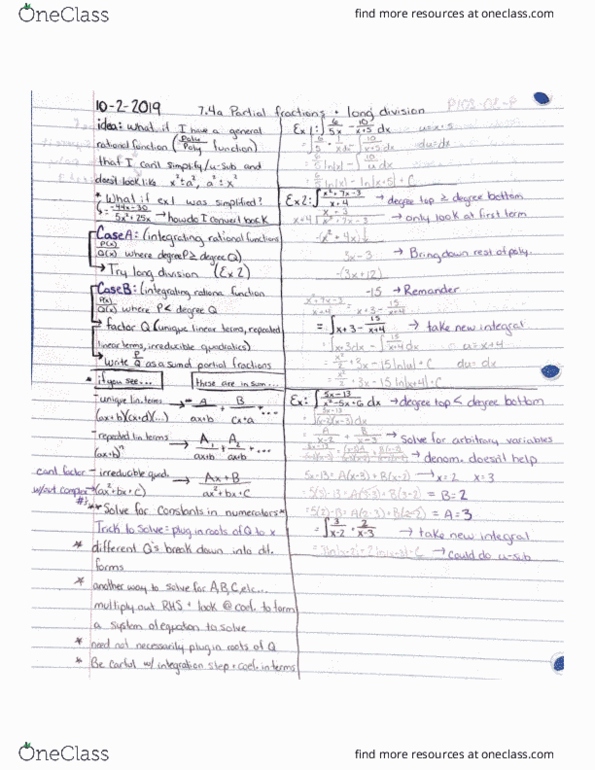 OneClass
find more resources at oneclass.com
10-2-2019
7.4a Partial fractions + long division
idea: what if I have a general
rational function (Poly/Poly function)
that I can't simplify/u-sub and
doesn't look like x²+a², a²-x²
* What if ex 1 was simplified?
5x²+25x → how do I convert back
Case A: (integrating rational functions
P(x)/Q(x) where degree P ≥ degree Q)
→ Try long division (Ex 2)
Case B: (integrating rational function
P(x)/Q(x) where P < degree Q
→ factor Q (unique linear terms, repeated
linear terms, irreducible quadratics)
→ Write P/Q as a sum of partial fractions
* if you see...
these are in sum...
- unique lin. terms → A/ax+b + B/cx+d + ...
(ax+b)(cx+d)(...)
- repeated lin. terms → A₁/ax+b + A₂/ax+b + ...
(ax+b)ⁿ
can't factor - irreducible quad. → Ax+B/ax²+bx+c
w/out complex (ax²+bx+c)
#s
* Solve for constants in numerators *
Trick to Solve = plug in roots of Q to x
* different Q's break down into dif.
forms
* another way to solve for A,B,C,etc...
multiply out RHS + look @ coef. to form
a system of equation to solve
* need not necessarily plug in roots of Q
* Be careful w/ integration step + coef. in terms
Ex 1: ∫ 6/5x - 10/x+5 dx u=x+5
du=dx
Ex 2: ∫ x²+7x-3/x+4 → degree top ≥ degree bottom
x+3
x+4 x²+7x-3 → only look at first term
-(x²+4x)
3x-3 → Bring down rest of poly.
-(3x+12)
-15 → Remander
= ∫ x+3 - 15/x+4 → take new integral
u=x+4
du=dx
Ex: ∫ 5x-13/x²-5x+6 dx → degree top < degree bottom
A/x-2 + B/x-3 → Solve for arbitrary variables
→ denom. doesn't help
5x-13 = A(x-3)+B(x-2) → x=2 x=3
5(3)-13 = A(3-3)+B(3-2) = B=2
5(2)-13 = A(2-3)+B(2-2) = A=3
= ∫ 3/x-2 + 2/x-3 → take new integral
→ could do u-sub
OneClass
find more resources at oneclass.com